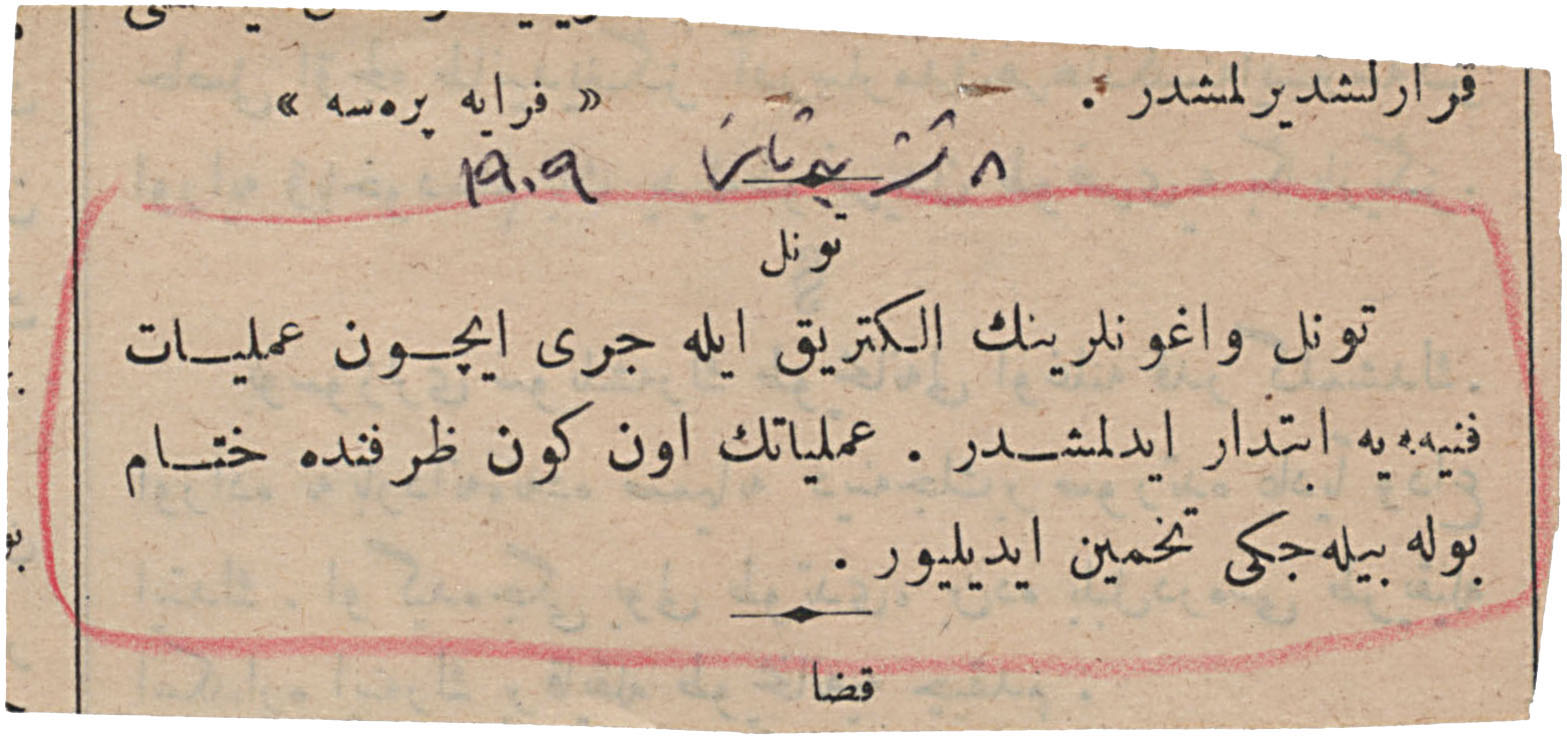 قرارلشدیرلمشدر .
« فرایه پره‌سه »
٨ تشرین ثانی ١٩٠٩
تونل
تونل واغونلرینك الكتریق ایله جری ایچون عملیات
فنیه‌یه ابتدار ایدلمشدر . عملیاتك اون كون ظرفنده ختام
بوله بیله‌جكی تخمین ایدیلیور .
قضا